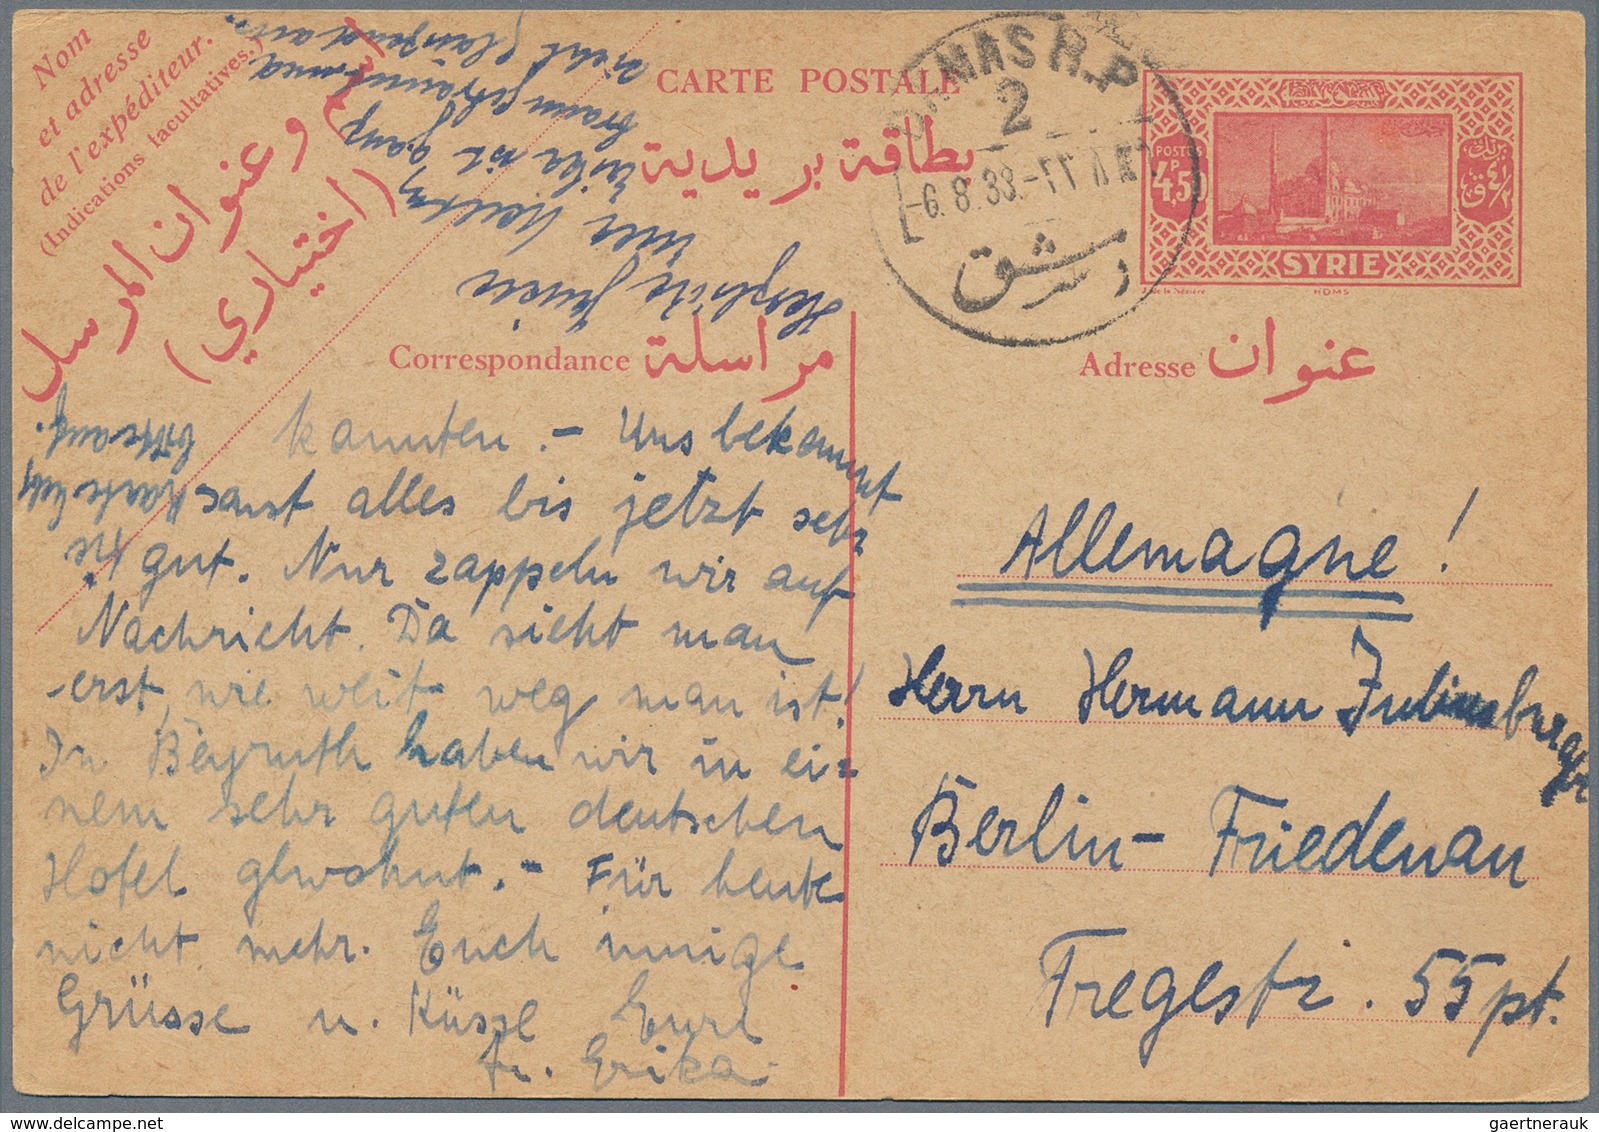 Nom
et adresse
de l'expéditeur.
(Indications facultatives.)
اسم وعنوان المرسل
(اختياري)
CARTE POSTALE
بطاقة بريدية
DAMAS R.P
2
-6.8.38.-11
دمشق
POSTES
4P,50
SYRIE
HDMS
Herzliche Grüsse
Correspondance مراسلة
Adresse عنوان
bitte auf.
kannten. - Uns bekommt
sonst alles bis jetzt sehr
gut. Nur zappeln wir auf
Nachricht. Da sieht man
erst, wie weit weg man ist!
In Beyruth haben wir in ei-
nem sehr guten deutschen
Hotel gewohnt. - Für heute
nicht mehr. Euch innige
Grüsse u. Küsse Eure
Erika
Allemagne!
Herrn Hermann Juliusburger
Berlin-Friedenau
Fregestr. 55 pt.
gaertnerauk